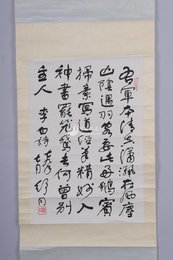 右軍本清真瀟洒在風塵
山陰遇羽客要此好鵝賓
掃素寫道經筆精妙入
神書罷籠鵝去何曾別
主人 李白詩 舒同